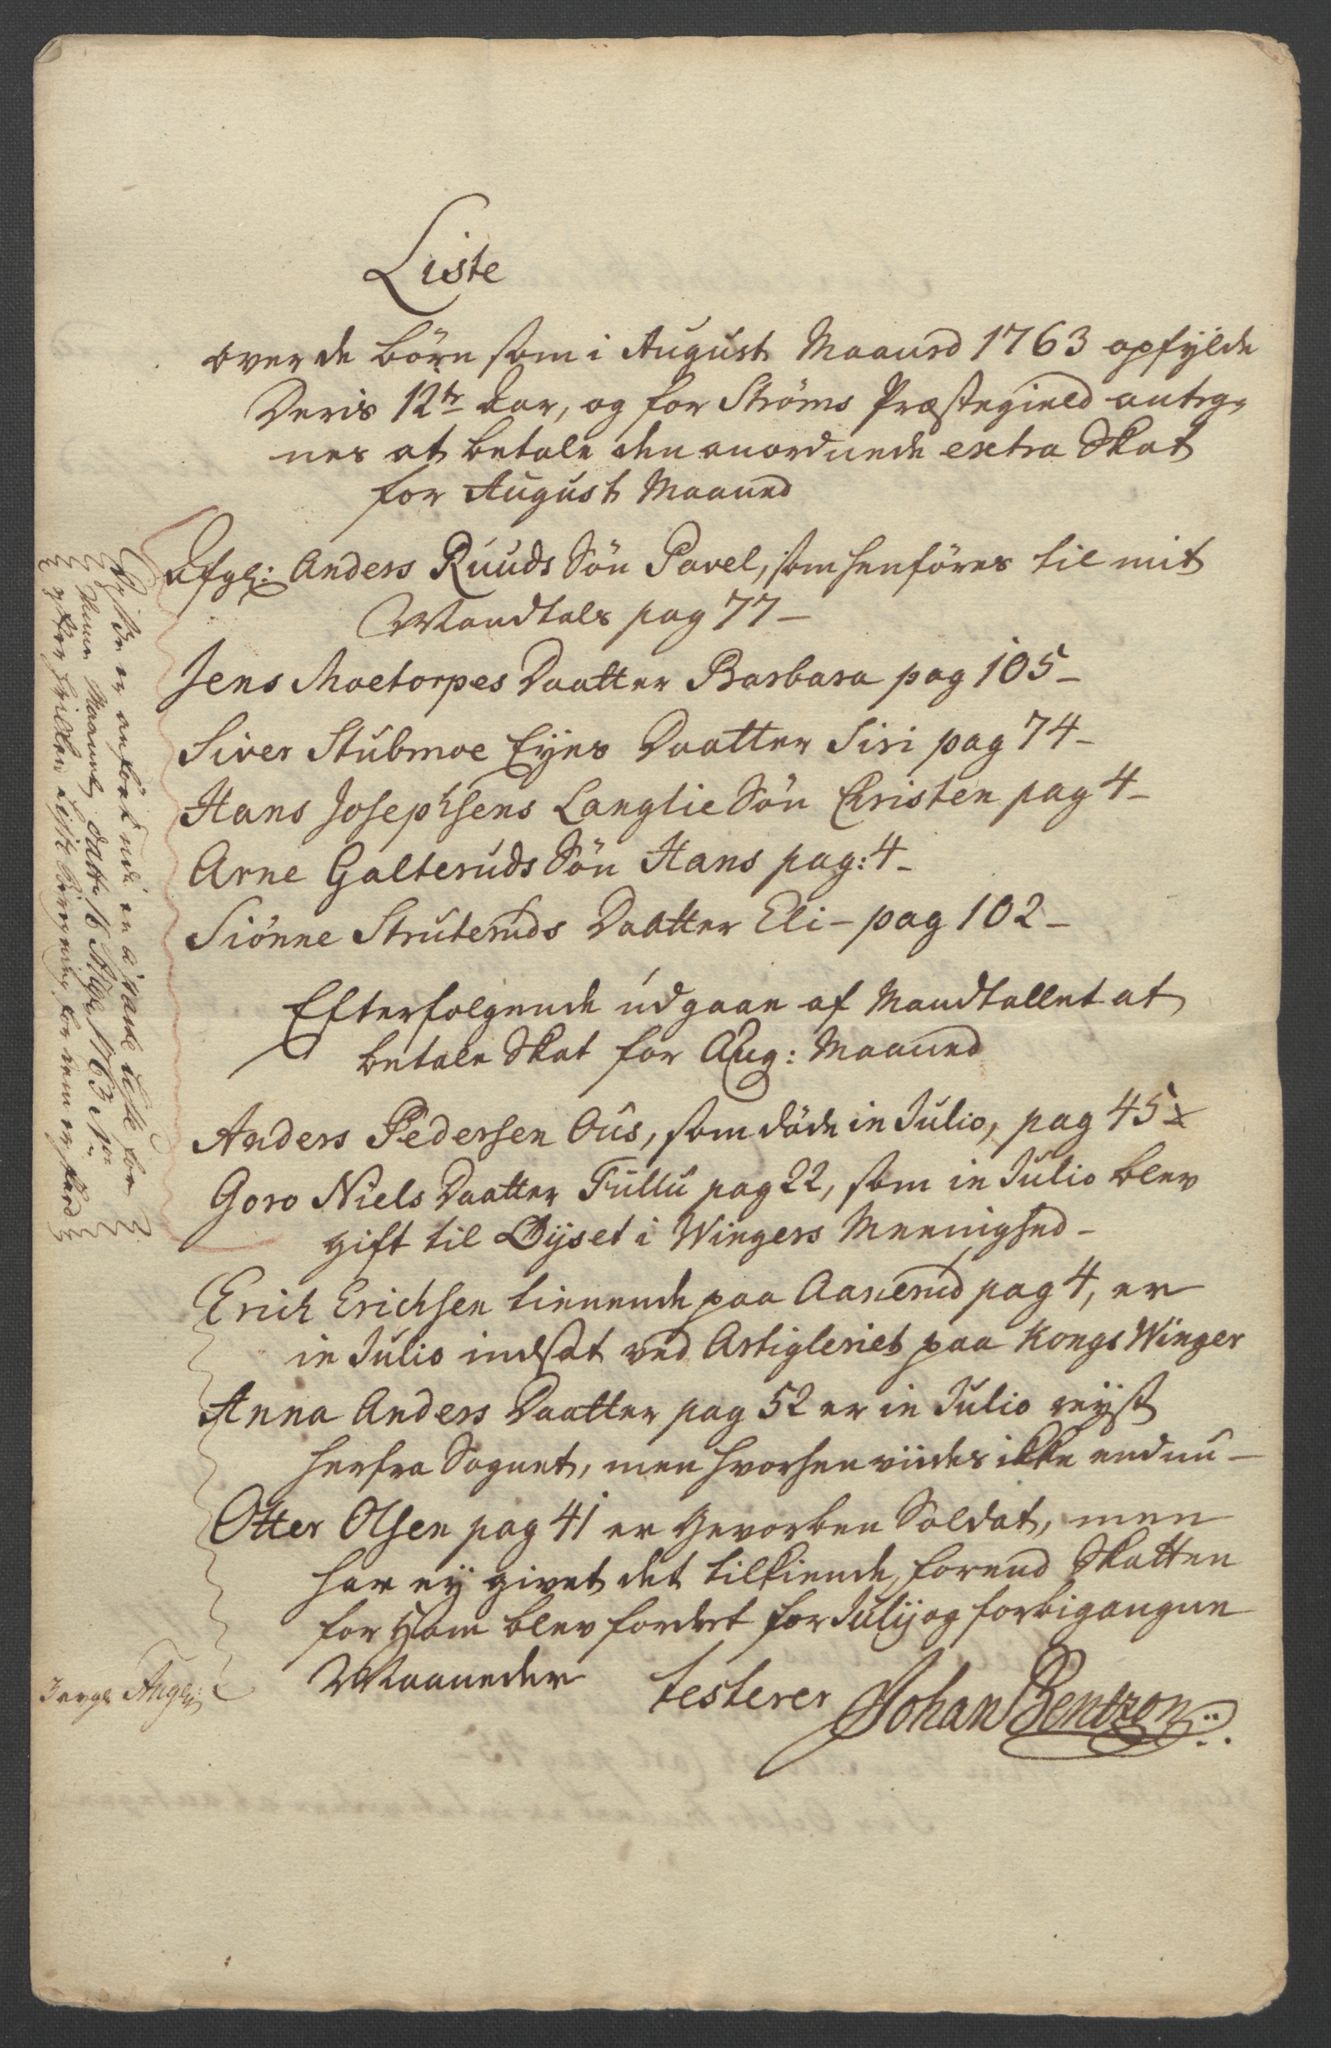 Liste
over de börn som i August Maaned 1763 opfylde
Deris 12te Aar, og for Ströms Præstegield anteg-
nes at betale den anordnede extra Skat
for August Maaned
Afgl: Anders Ruuds Sön Povel, som henföres til mit
Mandtals pag 77 -
Jens Moetorpes Daatter Barbara pag 105 -
Siver Stubmoe Eyes Daatter Siri pag 74 -
Hans Josephsens Langlie Sön Christen pag 4 -
Arne Galteruds Sön Hans pag: 4 -
Siönne Struteruds Daatter Eli - pag 102 -
Efterfolgende udgaae af Mandtallet at
betale Skat for Aug: Maaned
Anders Pedersen Ous, som döde in Julio, pag 45
Goro Niels Daatter Fullu pag 22, som in Julio blev
gift til Öyset i Wingers Meenighed -
Erich Erichsen tienende paa Aanerud pag 4, er
in Julio indsat ved Artigleriet paa Kongs Winger
Anna Anders Daatter pag 52 er in Julio reyst
herfra Sognet, men hvorhen viides ikke endnu -
Otter Olsen pag 41 er Gevorben Soldat, men
har ey givet det tilkiende, forend Skatten
for Ham blev fordret for Julij og forbigangne
Maaneder
testerer Johan Bentzon
Disse er anfört med in
Maaned 1763